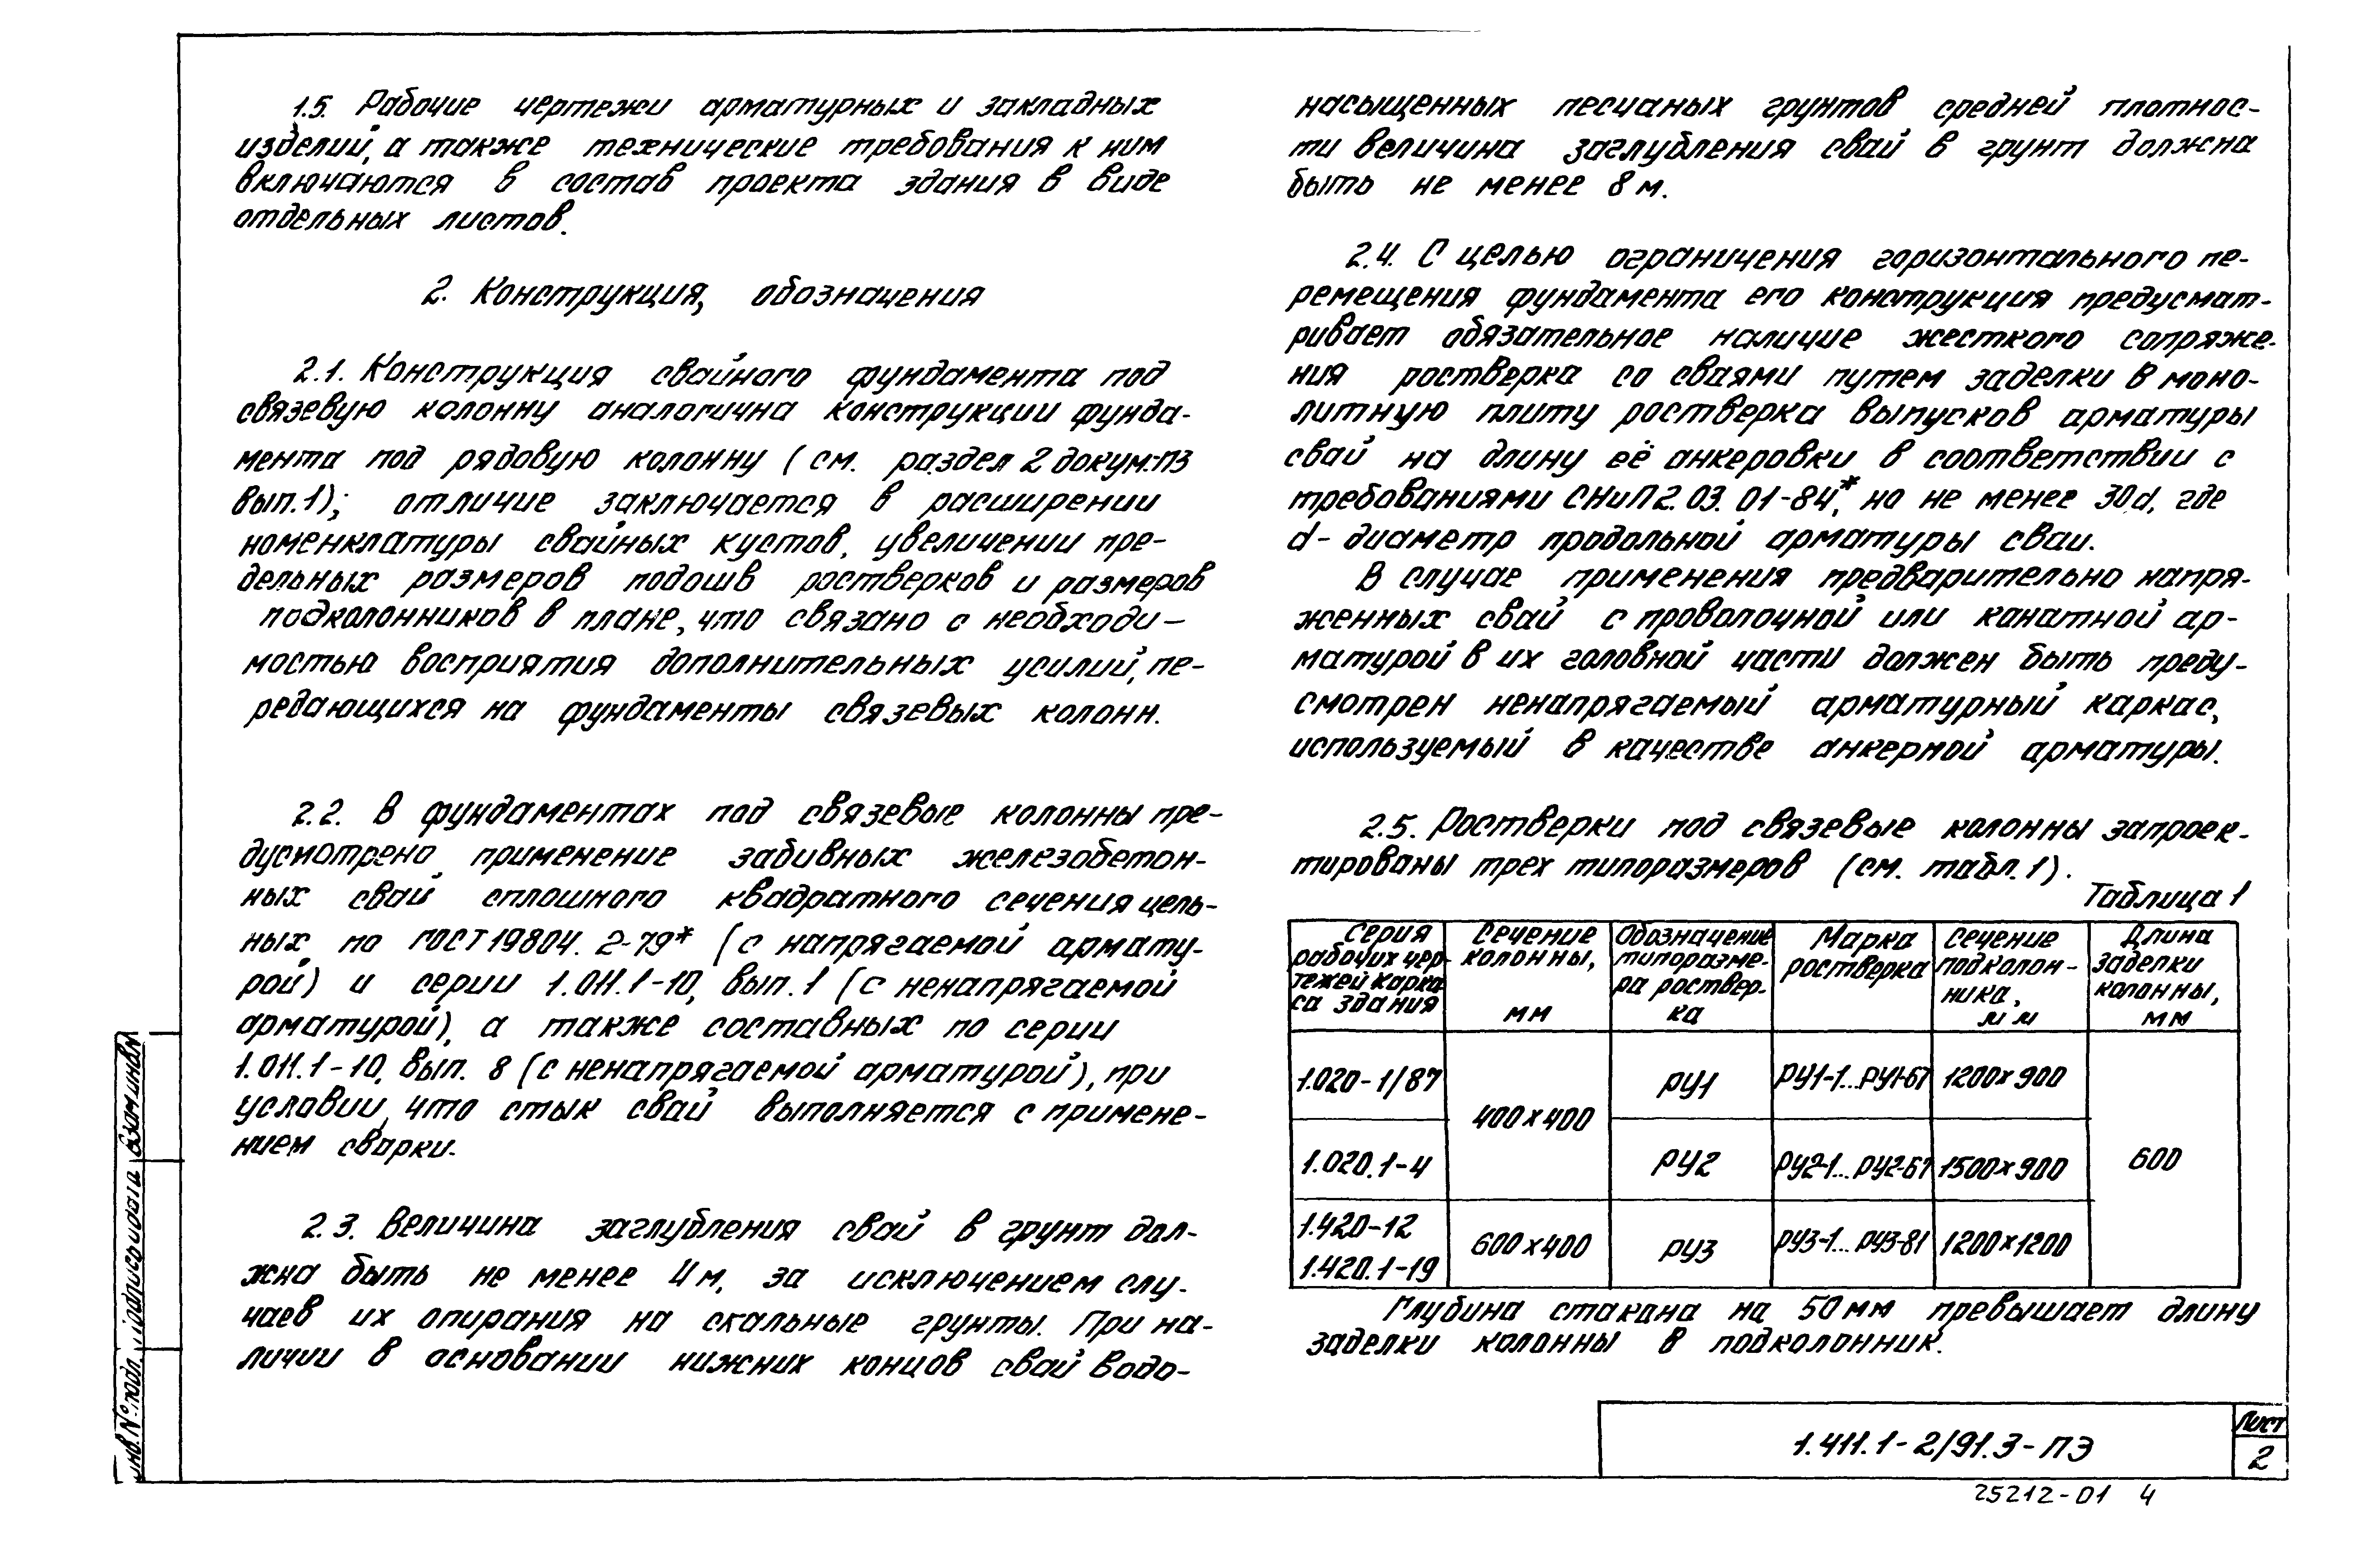 1.5. Рабочие чертежи арматурных и закладных
изделий, а также технические требования к ним
включаются в состав проекта здания в виде
отдельных листов.
2. Конструкция, обозначения
2.1. Конструкция свайного фундамента под
связевую колонну аналогична конструкции фунда-
мента под рядовую колонну (см. раздел 2 докум.-ПЗ
вып.1); отличие заключается в расширении
номенклатуры свайных кустов, увеличении пре-
дельных размеров подошв ростверков и размеров
подколонников в плане, что связано с необходи-
мостью восприятия дополнительных усилий, пе-
редающихся на фундаменты связевых колонн.
2.2. В фундаментах под связевые колонны пре-
дусмотрено применение забивных железобетон-
ных свай сплошного квадратного сечения цель-
ных по ГОСТ 19804.2-79* (с напрягаемой армату-
рой) и серии 1.011.1-10, вып.1 (с ненапрягаемой
арматурой), а также составных по серии
1.011.1-10, вып. 8 (с ненапрягаемой арматурой), при
условии, что стык свай выполняется с примене-
нием сварки.
2.3. Величина заглубления свай в грунт дол-
жна быть не менее 4 м, за исключением слу-
чаев их опирания на скальные грунты. При на-
личии в основании нижних концов свай водо-
насыщенных песчаных грунтов средней плотнос-
ти величина заглубления свай в грунт должна
быть не менее 8 м.
2.4. С целью ограничения горизонтального пе-
ремещения фундамента его конструкция предусмат-
ривает обязательное наличие жесткого сопряже-
ния ростверка со сваями путем заделки в моно-
литную плиту ростверка выпусков арматуры
свай на длину её анкеровки в соответствии с
требованиями СНиП 2.03.01-84*, но не менее 30d, где
d - диаметр продольной арматуры сваи.
В случае применения предварительно напря-
женных свай с проволочной или канатной ар-
матурой в их головной части должен быть преду-
смотрен ненапрягаемый арматурный каркас,
используемый в качестве анкерной арматуры.
2.5. Ростверки под связевые колонны запроек-
тированы трех типоразмеров (см. табл.1).
Таблица 1
Серия рабочих чер-тежей карка са здания | Сечение колонны, мм | Обозначение типоразме-ра роствер-ка | Марка ростверка | Сечение подколон-ника, мм | Длина заделки колонны, мм
1.020-1/87 | 400×400 | РУ1 | РУ1-1...РУ1-67 | 1200×900 | 600
1.020.1-4 | РУ2 | РУ2-1...РУ2-67 | 1500×900
1.420-12
1.420.1-19 | 600×400 | РУ3 | РУ3-1...РУ3-81 | 1200×1200
Глубина стакана на 50 мм превышает длину
заделки колонны в подколонник.
1.411.1-2/91.3-ПЭ
Лист
2
25212-01 4
Инв.№ подл. Подпись и дата Взам.инв.№